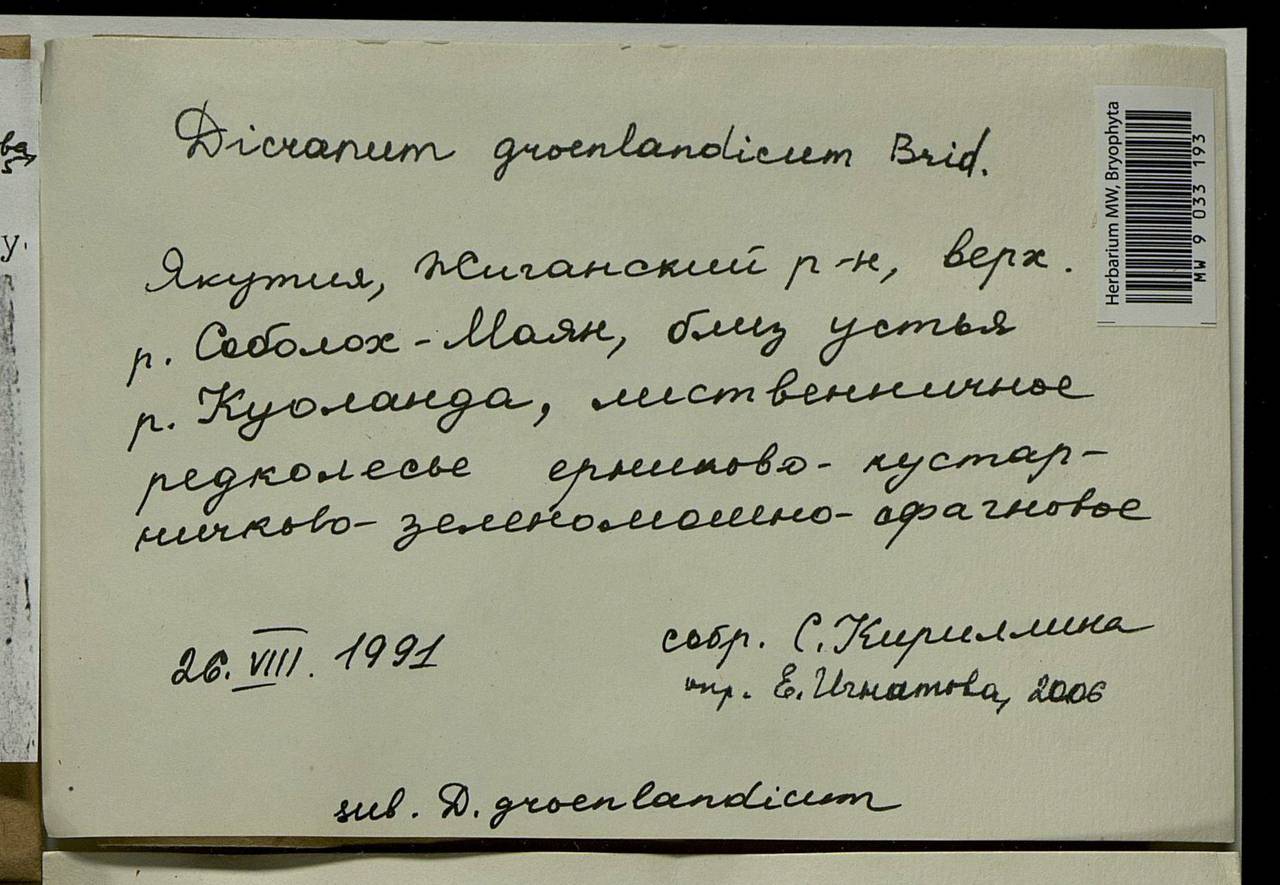 Dicranum groenlandicum Brid.
Якутия, Жиганский р-н, верх.
р. Соболох-Маян, близ устья
р. Куоланда, лиственничное
редколесье ерниково-кустар-
ничково-зеленомошно-сфагновое
26.VIII.1991
собр. С. Кириллина
опр. Е. Игнатова, 2006
sub. D. groenlandicum
Herbarium MW, Bryophyta
MW 9 033 193
ва,
5
у.